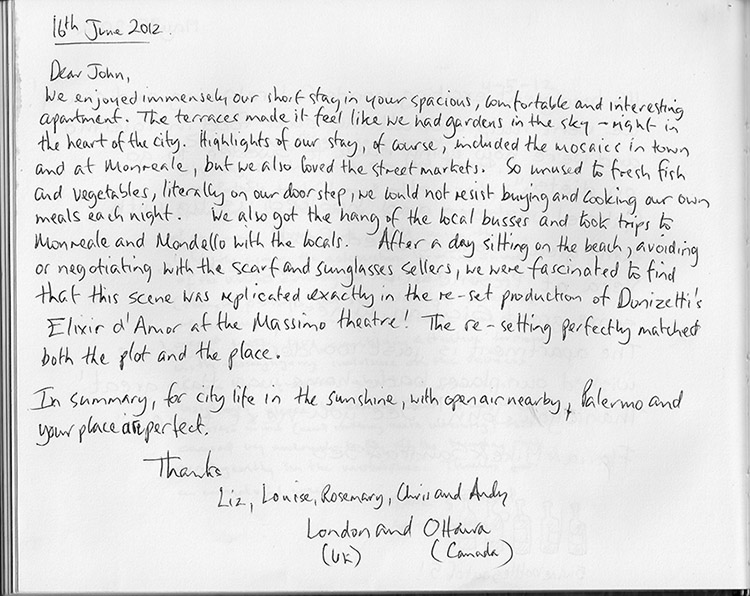 16th June 2012
Dear John,
We enjoyed immensely our short stay in your spacious, comfortable and interesting
apartment. The terraces made it feel like we had gardens in the sky – right in
the heart of the city. Highlights of our stay, of course, included the mosaics in town
and at Monreale, but we also loved the street markets. So unused to fresh fish
and vegetables, literally on our doorstep, we could not resist buying and cooking our own
meals each night. We also got the hang of the local busses and took trips to
Monreale and Mondello with the locals. After a day sitting on the beach, avoiding
or negotiating with the scarf and sunglasses sellers, we were fascinated to find
that this scene was replicated exactly in the re-set production of Donizetti's
Elixir d'Amor at the Massimo theatre! The re-setting perfectly matched
both the plot and the place.
In summary, for city life in the sunshine, with open air nearby, Palermo and
your place are perfect.
Thanks
Liz, Louise, Rosemary, Chris and Andy
London and Ottawa
(UK) (Canada)